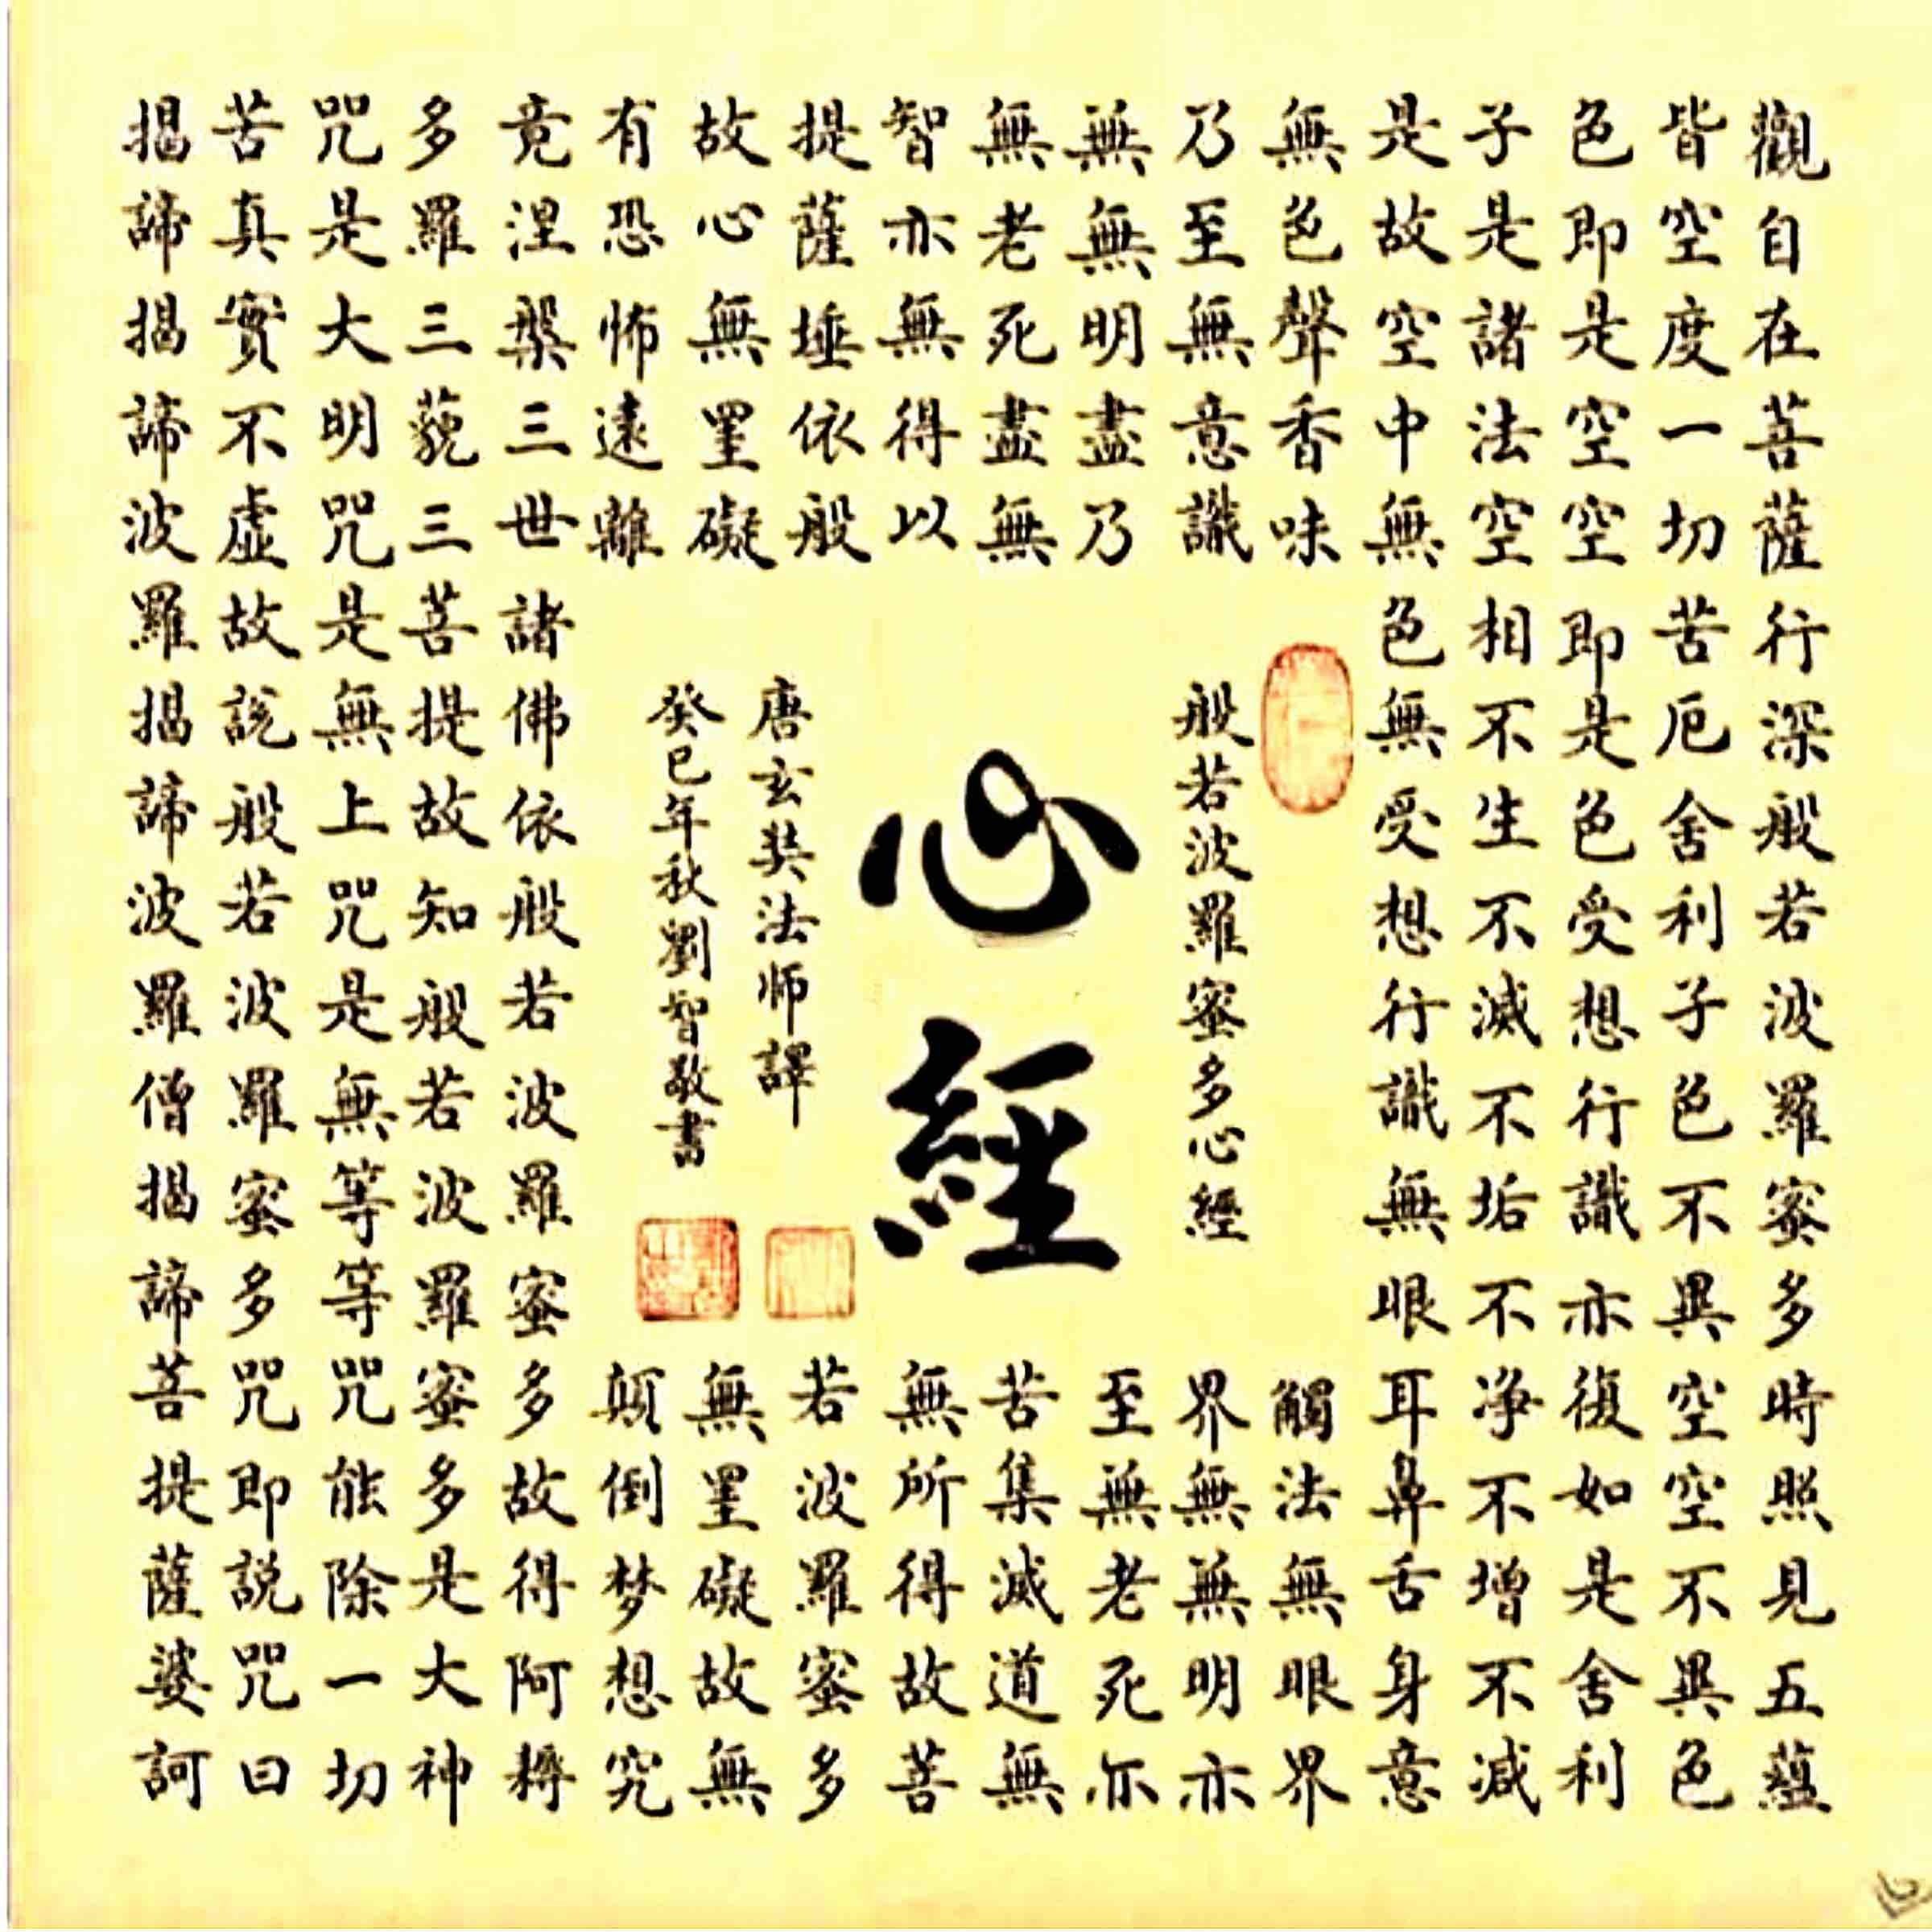 觀自在菩薩行深般若波羅蜜多時照見五蘊
皆空度一切苦厄舍利子色不異空空不異色
色即是空空即是色受想行識亦復如是舍利
子是諸法空相不生不滅不垢不净不增不減
是故空中無色無受想行識無眼耳鼻舌身意
無色聲香味觸法無眼界
乃至無意識界無無明亦
無無明盡乃至無老死亦
無老死盡無苦集滅道無
智亦無得以無所得故菩
提薩埵依般若波羅蜜多
故心無罣礙無罣礙故無
有恐怖遠離顛倒梦想究
竟涅槃三世諸佛依般若波羅蜜多故得阿耨
多羅三藐三菩提故知般若波羅蜜多是大神
咒是大明咒是無上咒是無等等咒能除一切
苦真實不虛故說般若波羅蜜多咒即說咒曰
揭諦揭諦波羅揭諦波羅僧揭諦菩提薩婆訶
般若波羅蜜多心經
心經
唐玄奘法師譯
癸巳年秋劉智敬書